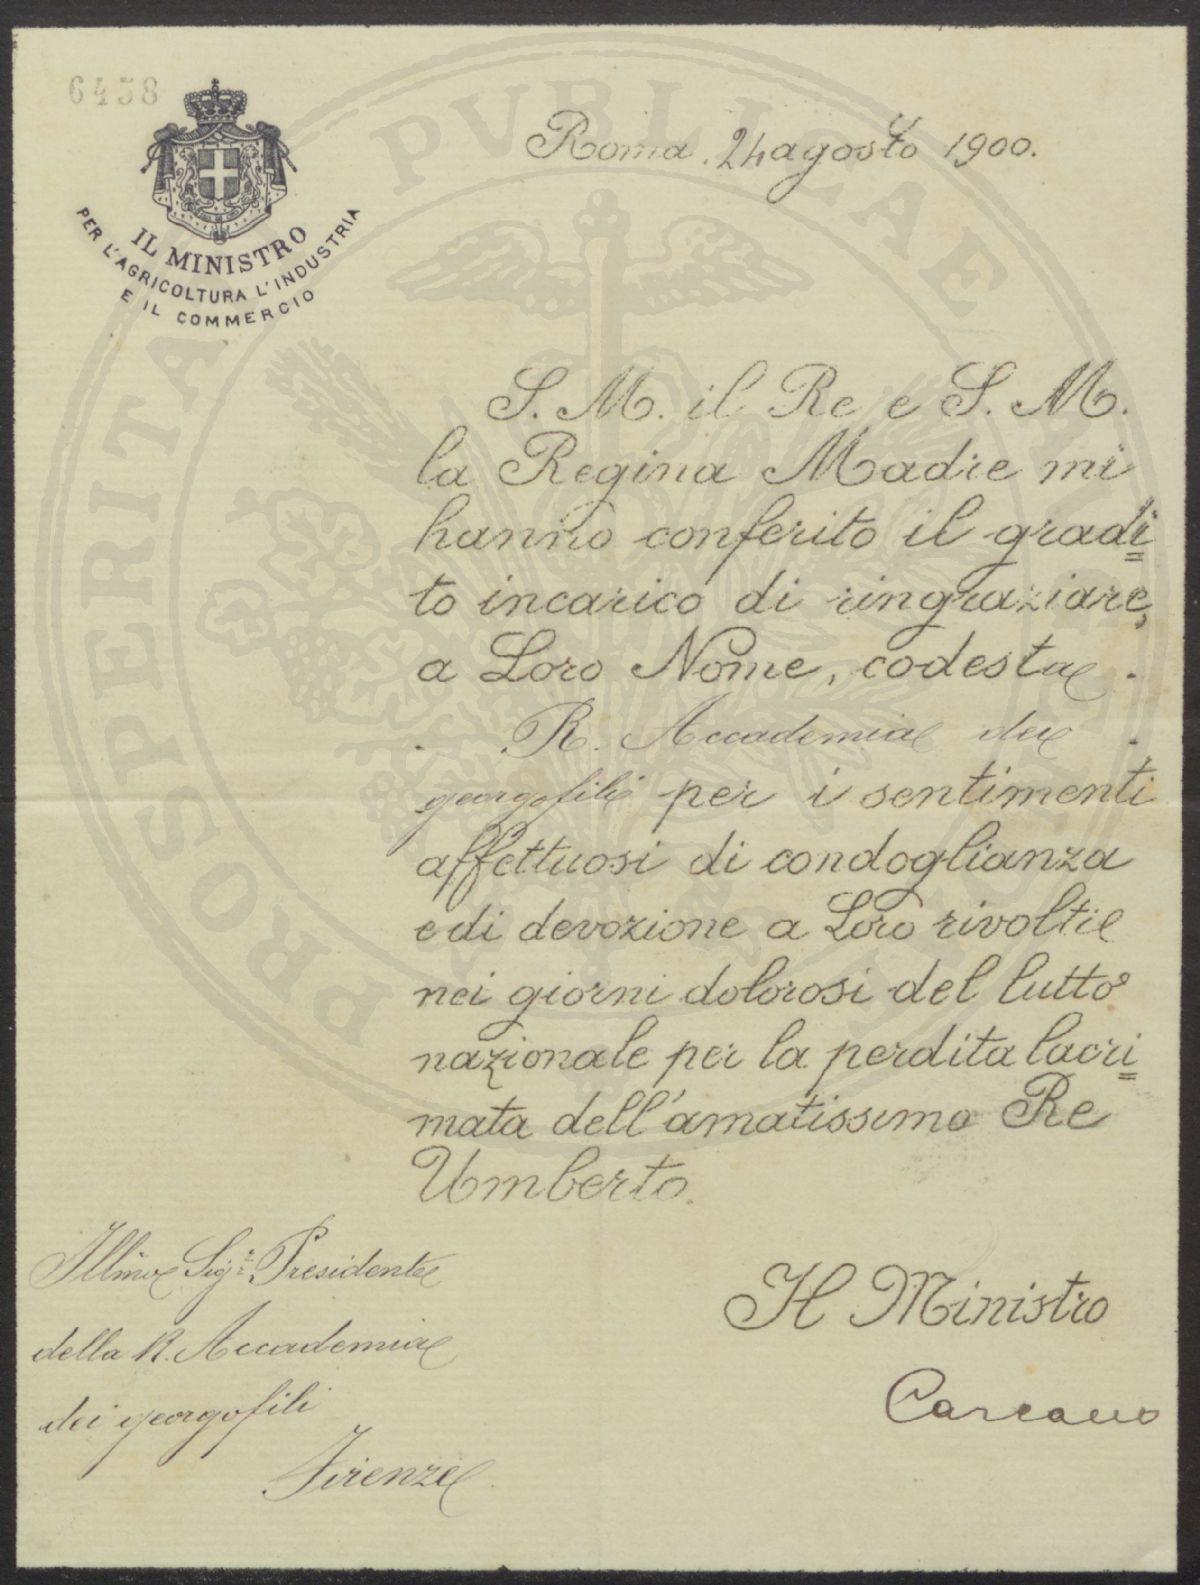 6458
IL MINISTRO
PER L'AGRICOLTURA L'INDUSTRIA
E IL COMMERCIO
Roma, 24 agosto 1900.
S. M. il Re e S. M.
la Regina Madre mi
hanno conferito il gradi=
to incarico di ringraziare,
a Loro Nome, codesta
R. Accademia dei
georgofili per i sentimenti
affettuosi di condoglianza
e di devozione a Loro rivolti
nei giorni dolorosi del lutto
nazionale per la perdita lacri=
mata dell'amatissimo Re
Umberto.
Il Ministro
Carcano
Illmo Sigr. Presidente
della R. Accademia
dei georgofili
Firenze
PROSPERITA PVBLICAE